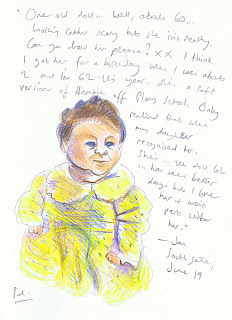 "One old doll... well, about 60...
looking rather scary but she isn't really.
Can you draw her please? XX I think
I got her for a birthday when I was about
2 and I'm 62 this year. She's a soft
version of Hamble off Play School. Only
realised that when
my daughter
recognised her.
She's ... the doll 62
... has seen better
days but I love
her & won't
part without
her."
— Jan
South
June 19